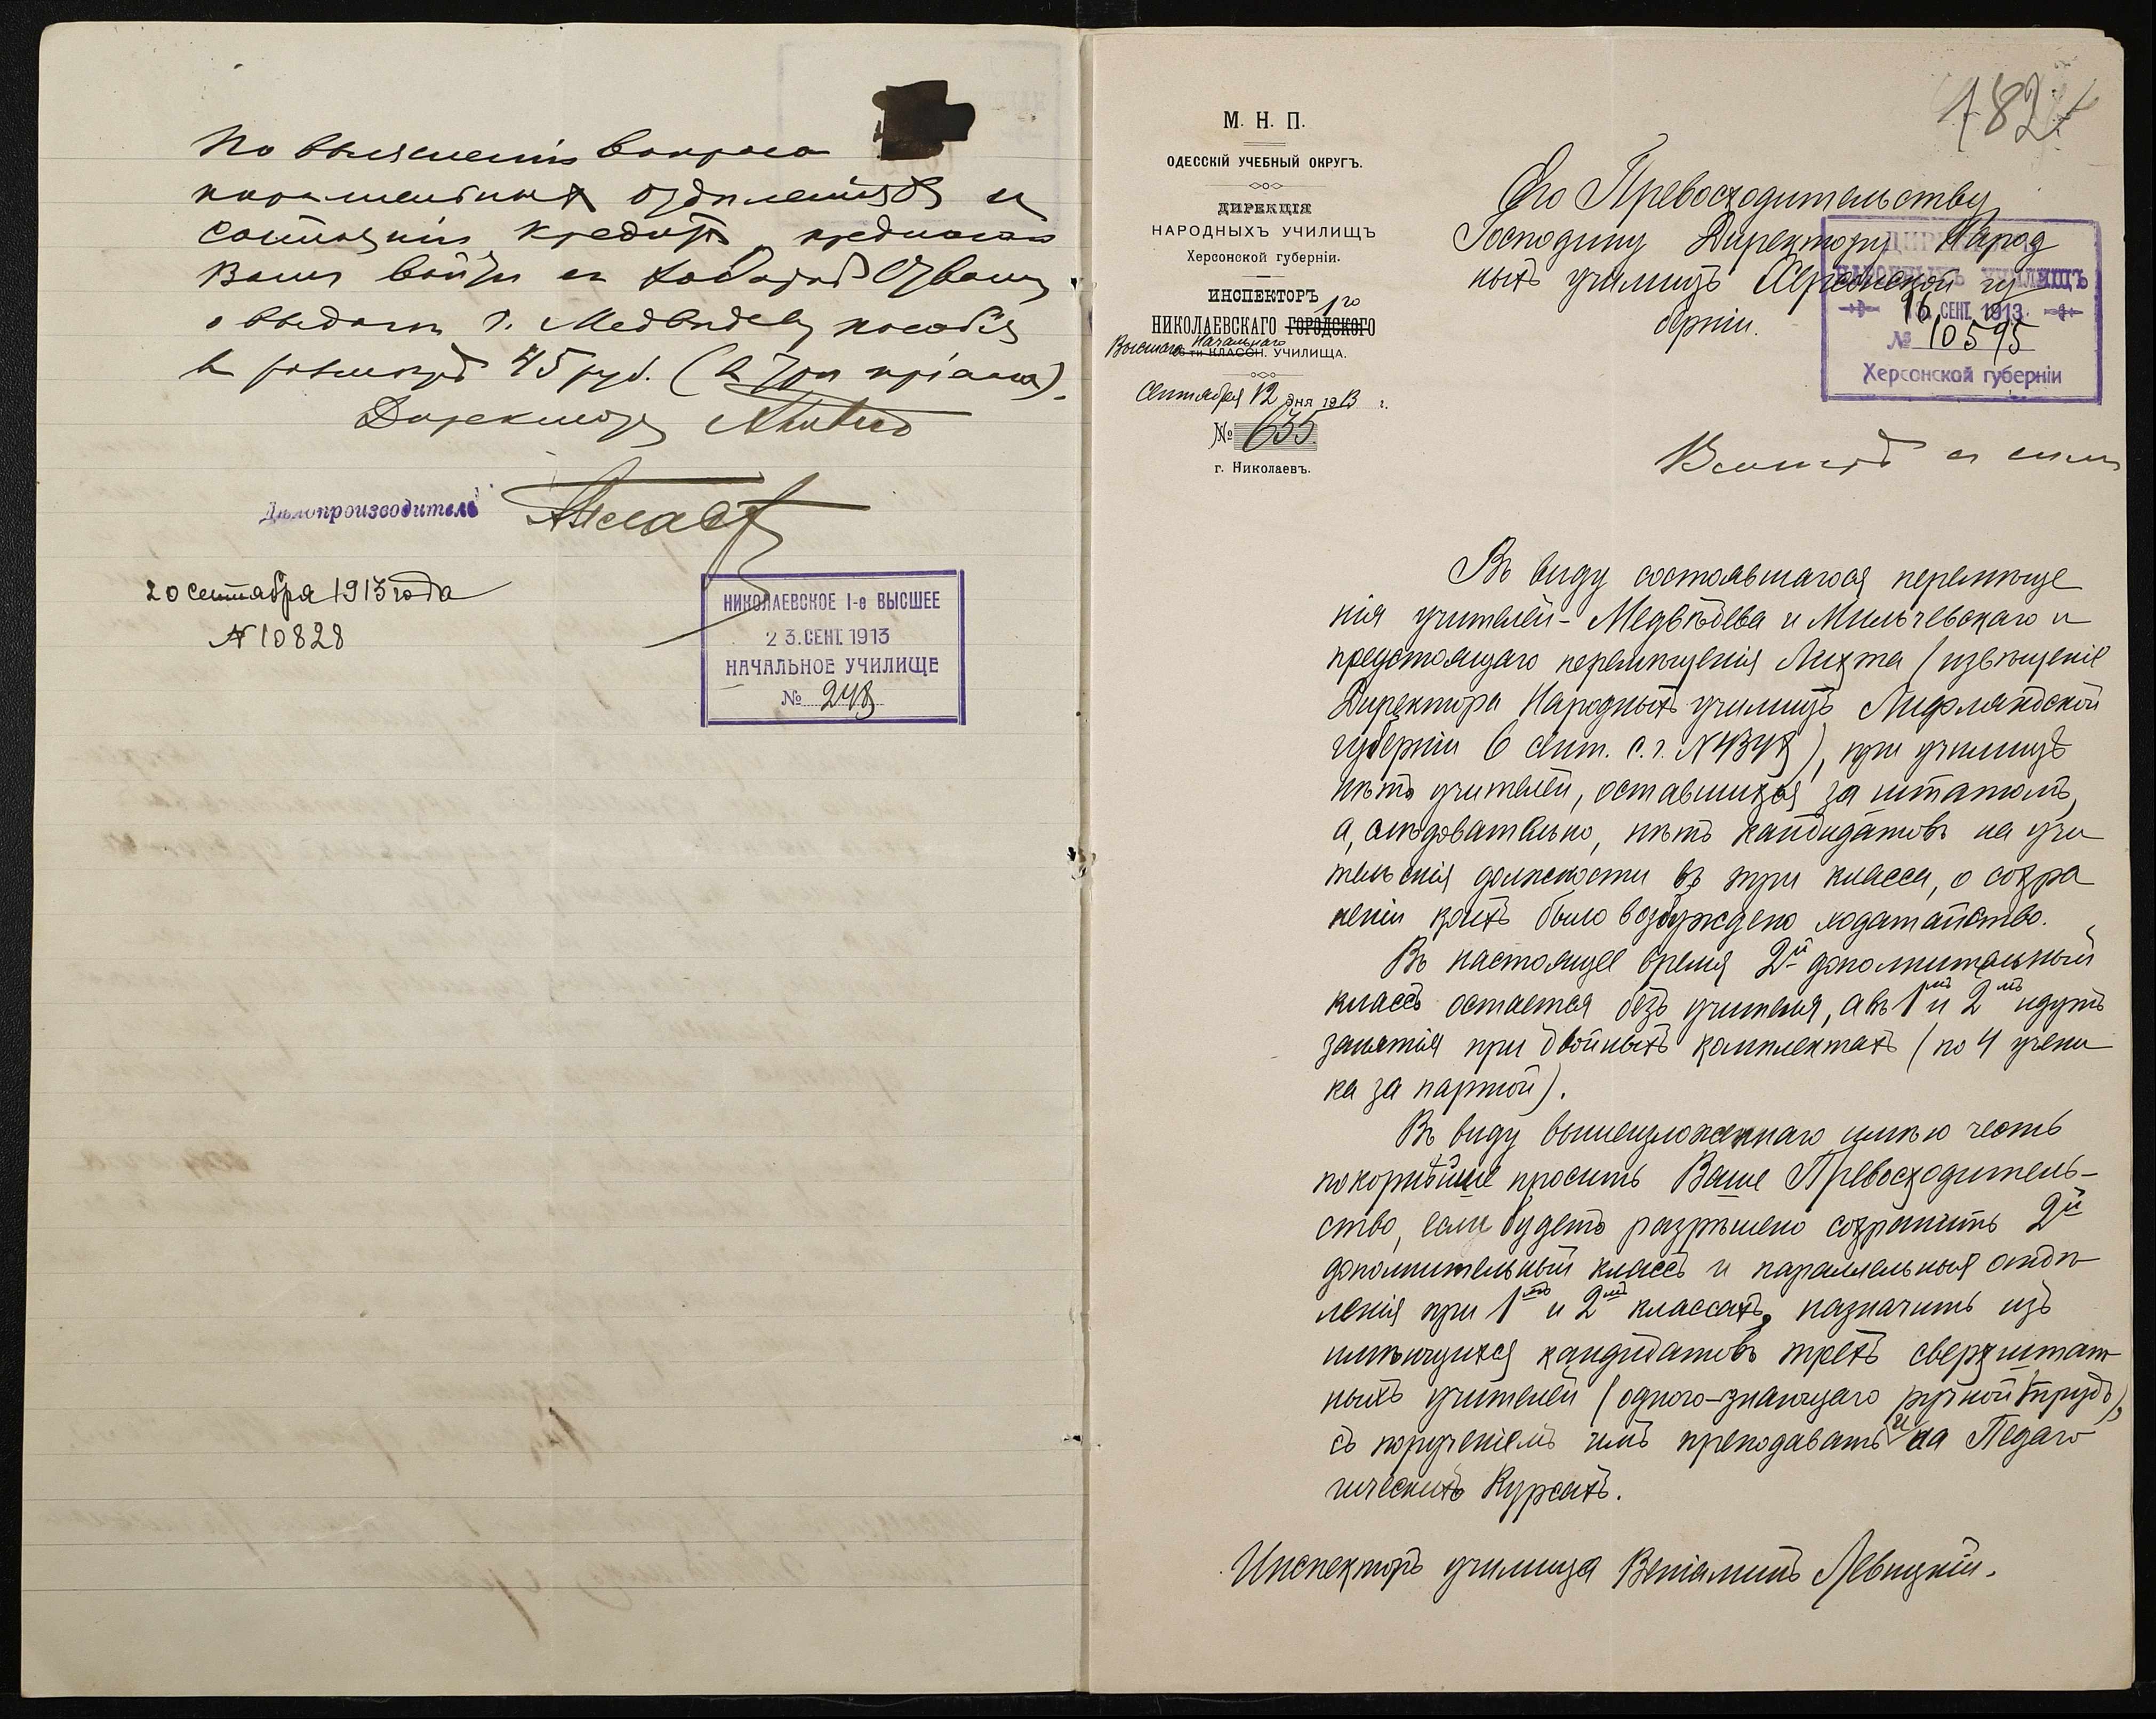 По выясненiи вопроса
параллельных отделенiях и
состоянiи кредита, предлагаю
Вамъ войти съ
о выдачѣ г. Медвѣдеву пособiя
въ размѣрѣ 45 руб. (
Директоръ
Дѣлопроизводитель
20 сентября 1913 года
№ 10828
НИКОЛАЕВСКОЕ I-е ВЫСШЕЕ
23. СЕНТ. 1913
НАЧАЛЬНОЕ УЧИЛИЩЕ
№ 248
182
М. Н. П.
ОДЕССКІЙ УЧЕБНЫЙ ОКРУГЪ.
ДИРЕКЦІЯ
НАРОДНЫХЪ УЧИЛИЩЪ
Херсонской губерніи.
ИНСПЕКТОРЪ
1го
НИКОЛАЕВСКАГО ГОРОДСКОГО
Высшаго Начальнаго КЛАССН. УЧИЛИЩА.
Сентября 12 дня 1913 г.
№ 635
г. Николаевъ.
Его Превосходительству
Господину Директору Народ
ныхъ училищъ Херсонской гу
берніи.
ДИРЕКЦІЯ
НАРОДНЫХЪ УЧИЛИЩЪ
16 СЕНТ. 1913
№ 10595
Херсонской губерніи
Въ виду состоявшагося перемѣще
нія учителей - Медвѣдева и Мильчевскаго и
предстоящаго перемѣщенія Лихта (извѣщеніе
Директора Народныхъ училищъ Лифляндской
губерніи 6 сент. с. г. № 4348), при училищѣ
нѣтъ учителей, оставшихся за штатомъ,
а, слѣдовательно, нѣтъ кандидатовъ на учи
тельскія должности въ три класса, о сохра
неніи коихъ было возбуждено ходатайство.
Въ настоящее время 2й дополнительный
классъ остается безъ учителя, а въ 1мъ и 2мъ идутъ
занятія при двойныхъ комплектахъ (по 4 учени
ка за партой).
Въ виду вышеизложеннаго имѣю честь
покорнѣйше просить Ваше Превосходитель-
ство, если будетъ разрѣшено сохранить 2й
дополнительный классъ и параллельныя отдѣ
ленія при 1мъ и 2мъ классахъ, назначить изъ
имѣющихся кандидатовъ трехъ сверхштат
ныхъ учителей (одного - знающаго ручной трудъ),
съ порученіемъ имъ преподавать и на Педаго
гическихъ Курсахъ.
Инспекторъ училища Веніаминъ Левицкій.